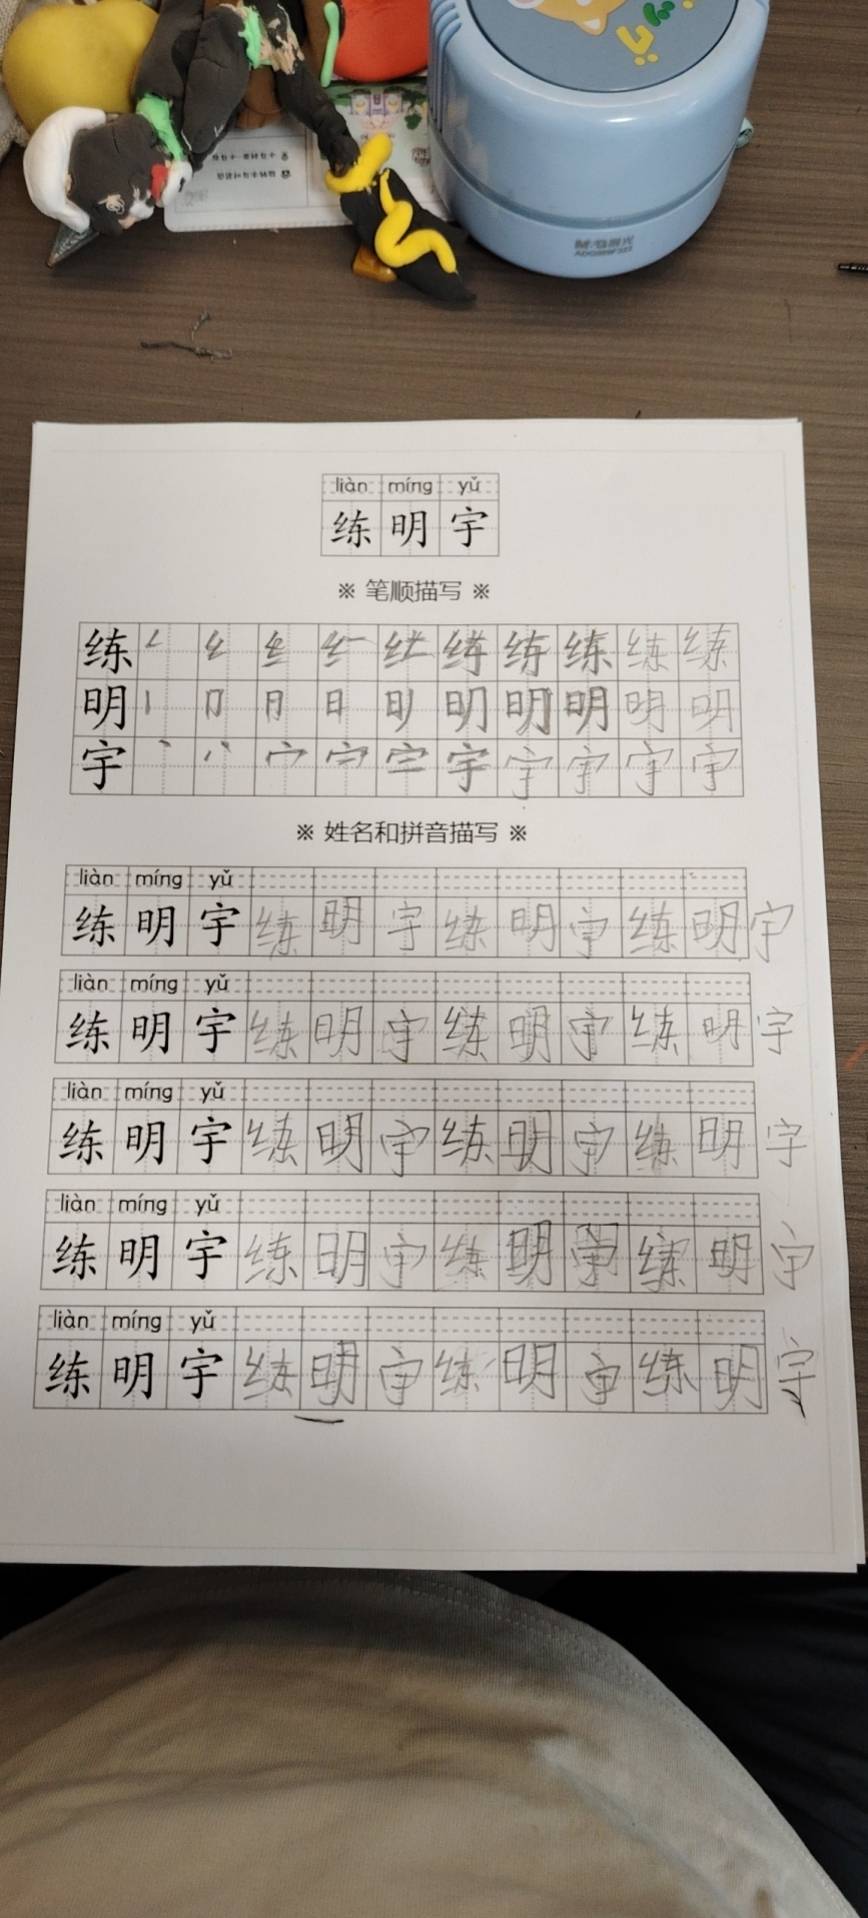 M&G 晨光
liàn míng yǔ
练 明 宇
※ 笔顺描写 ※
练 练 练 练 练 练
明 明 明 明 明 明
宇 宇 宇 宇 宇 宇
※ 姓名和拼音描写 ※
liàn míng yǔ
练 明 宇 练 明 宇 练 明 宇 练 明 宇
liàn míng yǔ
练 明 宇 练 明 宇 练 明 宇 练 明 宇
liàn míng yǔ
练 明 宇 练 明 宇 练 明 宇 练 明 字
liàn míng yǔ
练 明 宇 练 明 宇 练 明 宇 练 明 宇
liàn míng yǔ
练 明 宇 练 明 宇 练 明 宇 练 明 宇